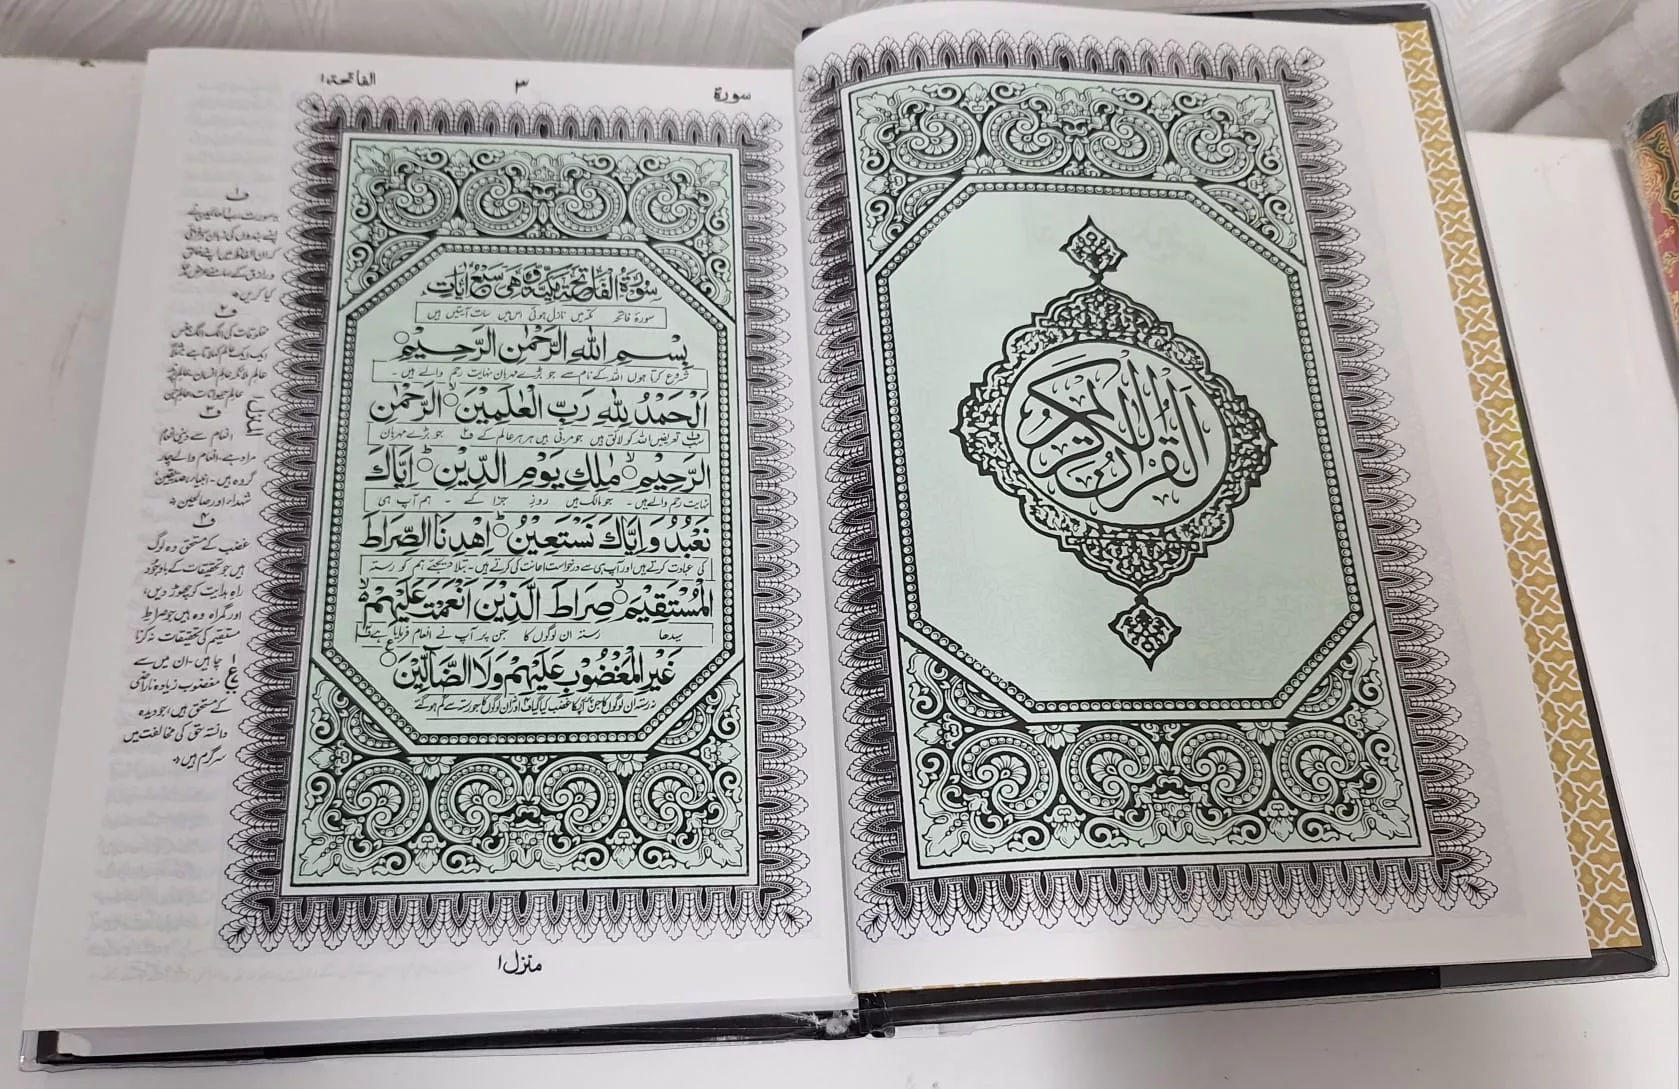 القرآن الكريم
سورة ٣ الفاتحة ١
سُوْرَةُ الْفَاتِحَةِ مَكِّيَّةٌ وَّهِيَ سَبْعُ اٰيَاتٍ
سورۃ فاتحہ مکہ میں نازل ہوئی اس میں سات آیتیں ہیں
بِسْمِ اللّٰهِ الرَّحْمٰنِ الرَّحِيْمِ
شروع کرتا ہوں اللہ کے نام سے جو بڑے مہربان نہایت رحم والے ہیں ۔
اَلْحَمْدُ لِلّٰهِ رَبِّ الْعٰلَمِيْنَ ۙ الرَّحْمٰنِ
سب تعریفیں اللہ کو لائق ہیں جو مربی ہیں ہر ہر عالم کے ف۲ جو بڑے مہربان
الرَّحِيْمِ ۙ مٰلِكِ يَوْمِ الدِّيْنِ ؕ اِيَّاكَ
نہایت رحم والے ہیں ۔ جو مالک ہیں روز جزا کے ۔ ہم آپ ہی
نَعْبُدُ وَاِيَّاكَ نَسْتَعِيْنُ ؕ اِهْدِنَا الصِّرَاطَ
کی عبادت کرتے ہیں اور آپ ہی سے درخواست اعانت کی کرتے ہیں ۔ بتلا دیجئے ہم کو رستہ
الْمُسْتَقِيْمَ ۙ صِرَاطَ الَّذِيْنَ اَنْعَمْتَ عَلَيْهِمْ ۙ
سیدھا رستہ ان لوگوں کا جن پر آپ نے انعام فرمایا ہے ف۳
غَيْرِ الْمَغْضُوْبِ عَلَيْهِمْ وَلَا الضَّآلِّيْنَ
نہ رستہ ان لوگوں کا جن پر آپ کا غضب کیا گیا اور نہ ان لوگوں کا جو رستہ سے گم ہوگئے
ف۱
یہ سورت رب العالمین نے
اپنے بندوں کی زبان سے فرمائی
کہ ان الفاظ میں اپنے خالق
و رازق کے سامنے عرض
کیا کریں ۔
ف۲
مخلوقات کی الگ الگ جنس
ایک ایک عالم کہلاتا ہے مثلاً
عالم ملائکہ عالم انسان
ف۳
انعام سے دینی انعام
مراد ہے ۔ انعام والے چار
گروہ ہیں ۔ انبیاء، صدیقین
شہداء اور صالحین ۔
ف۴
غضب کے مستحق وہ لوگ
ہیں جو تحقیقات کے باوجود
راہ ہدایت کو چھوڑ دیں،
اور گمراہ وہ ہیں جو صراط
مستقیم کی تحقیقات نہ کرنا
چاہیں ۔ ان میں سے
مغضوب زیادہ ناراضی
کے مستحق ہیں، جو دیدہ
دانستہ حق کی مخالفت میں
سرگرم ہیں ۔
منزل ١